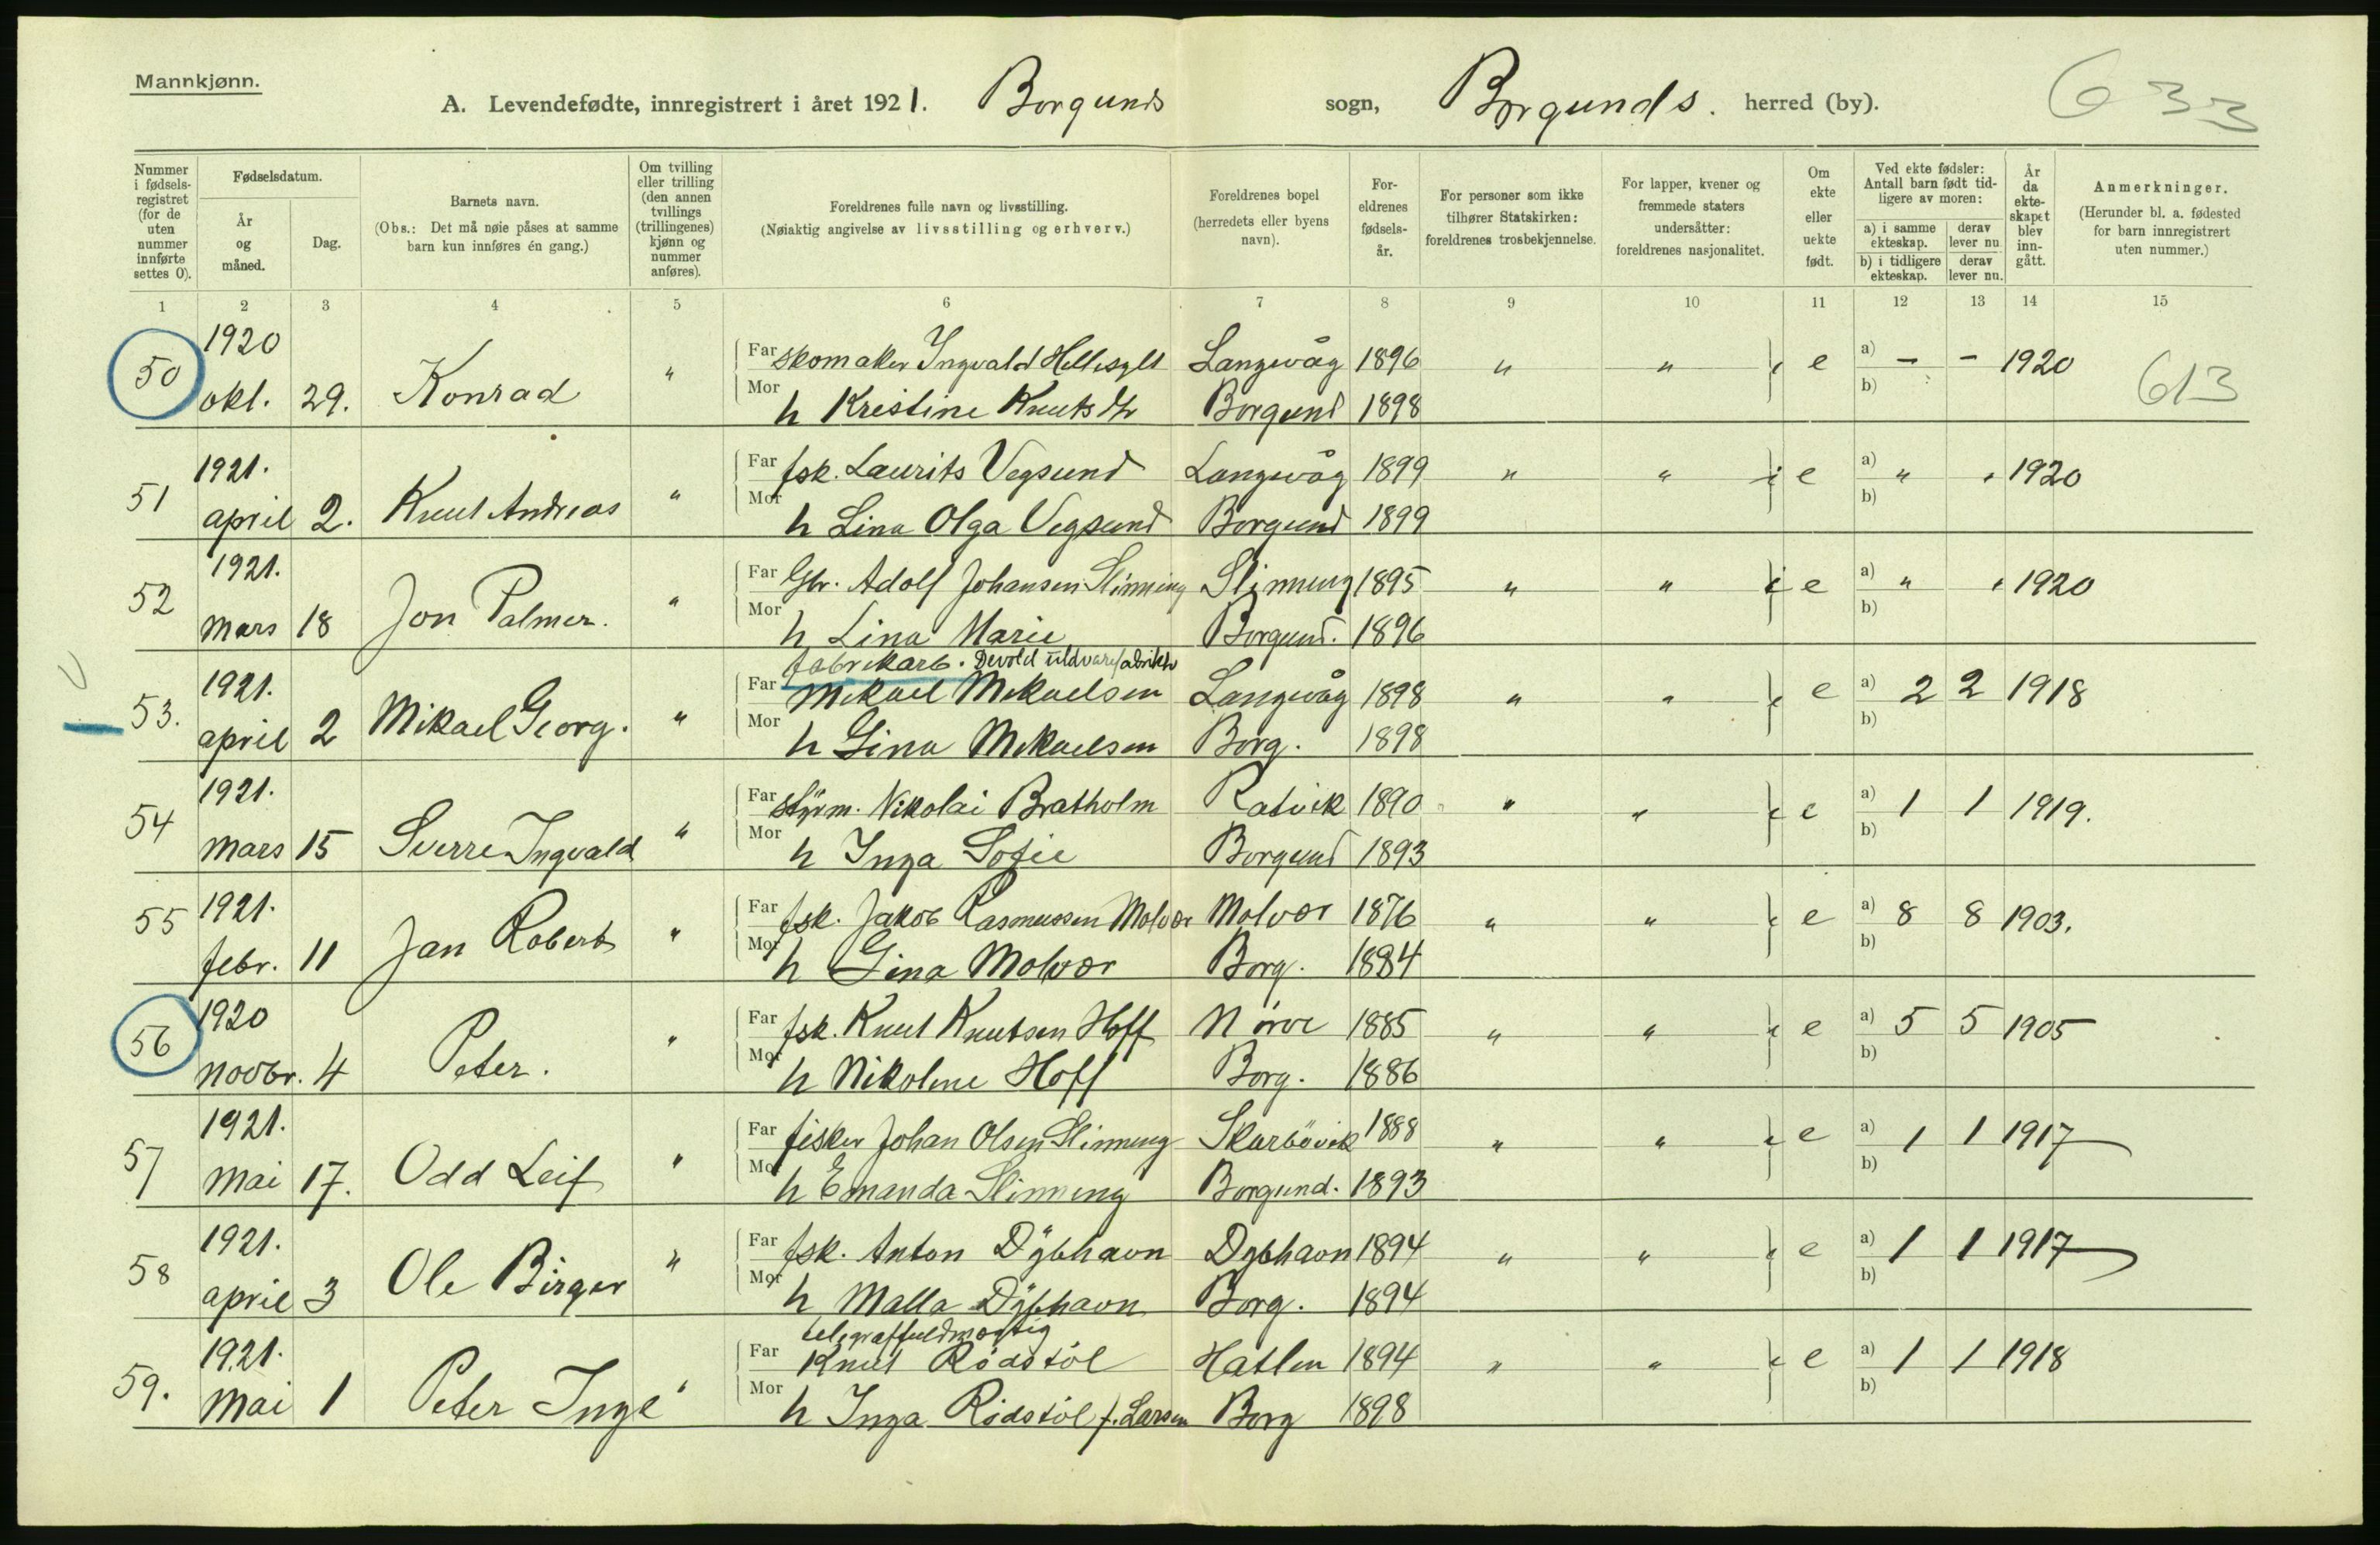 Mannkjønn.
A. Levendefødte, innregistrert i året 1921. Borgunds sogn, Borgunds. herred (by). 633
Nummer i fødsels-registret (for de uten nummer innførte settes 0).
Fødselsdatum.
År og måned.
Dag.
Barnets navn.
(Obs.: Det må nøie påses at samme barn kun innføres én gang.)
Om tvilling eller trilling (den annen tvillings (trillingenes) kjønn og nummer anføres).
Foreldrenes fulle navn og livsstilling.
(Nøiaktig angivelse av livsstilling og erhverv.)
Foreldrenes bopel (herredets eller byens navn).
For-eldrenes fødsels-år.
For personer som ikke tilhører Statskirken: foreldrenes trosbekjennelse.
For lapper, kvener og fremmede staters undersåtter: foreldrenes nasjonalitet.
Om ekte eller uekte født.
Ved ekte fødsler: Antall barn født tid-ligere av moren:
a) i samme ekteskap.
derav lever nu
b) i tidligere ekteskap.
derav lever nu.
År da ekte-skapet blev inn-gått.
Anmerkninger.
(Herunder bl. a. fødested for barn innregistrert uten nummer.)
1 2 3 4 5 6 7 8 9 10 11 12 13 14 15
1920 Far skomaker Ingvald Hellesylt Langevåg 1896 " " e a) - - 1920
50 okt. 29. Konrad " Mor h Kristine Knutsdtr Borgund 1898 b) 613
1921. Far fsk. Laurits Vegsund Langevåg 1899 " " e a) " " 1920
51 april 2. Knut Andreas " Mor h Lina Olga Vegsund Borgund 1899 b)
1921. Far Gbr. Adolf Johansen Slinning Slinning 1895 " " e a) " " 1920
52 mars 18 Jon Palmer. " Mor h Lina Marie Borgund. 1896 b)
fabrikarb. Devold uldvarefabrikk
1921. Far Mikael Mikaelsen Langevåg 1898 " " e a) 2 2 1918
53. april 2 Mikael Georg. " Mor h Gina Mikaelsen Borg. 1898 b)
1921. Far styrm. Nikolai Bratholm Ratvik 1890 " " e a) 1 1 1919.
54 mars 15 Sverre Ingvald " Mor h Inga Sofie Borgund 1893 b)
55 1921. Far fsk. Jakob Rasmussen Molvær Molvær 1876 " " e a) 8 8 1903.
febr. 11 Jan Robert " Mor h Gina Molvær Borg. 1884 b)
1920 Far fsk. Knut Knutsen Hoff Nörve 1885 " " e a) 5 5 1905
56 novbr. 4 Peter. " Mor h Nikoline Hoff Borg. 1886 b)
1921. Far fisker Johan Olsen Slinning Skarbövik 1888 " " e a) 1 1 1917
57 mai 17. Odd Leif " Mor h Emanda Slinning Borgund. 1893 b)
1921. Far fsk. Anton Dybhavn Dybhavn 1894 " " e a) 1 1 1917
58 april 3 Ole Birger " Mor h Malla Dybhavn Borg. 1894 b)
telegraffuldmægtig
1921. Far Knut Rödstöl Hatlen 1894 " " e a) 1 1 1918
59. mai 1 Peter Inge " Mor h Inga Rödstöl f. Larsen Borg 1898 b)